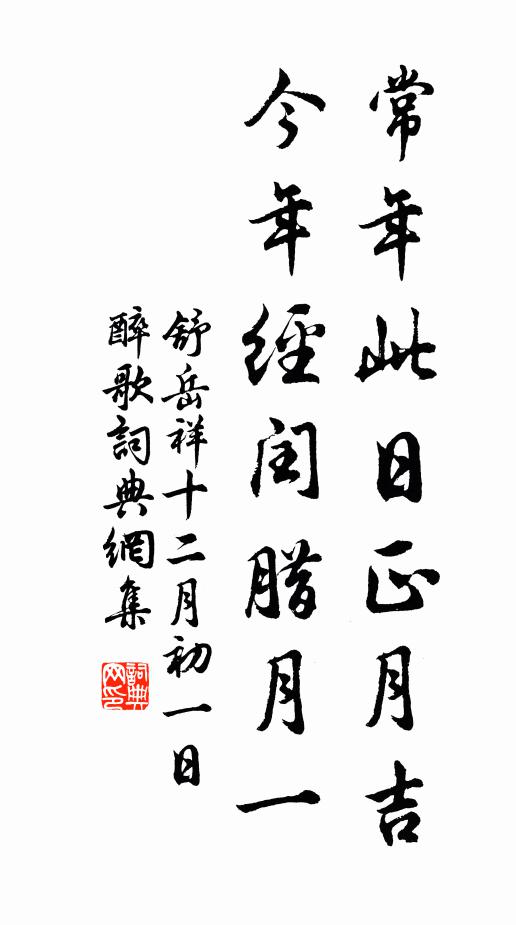 常年此日正月吉
今年經閏腊月一
舒岳祥十二月初一日
醉歌詞典網集
詞典网印